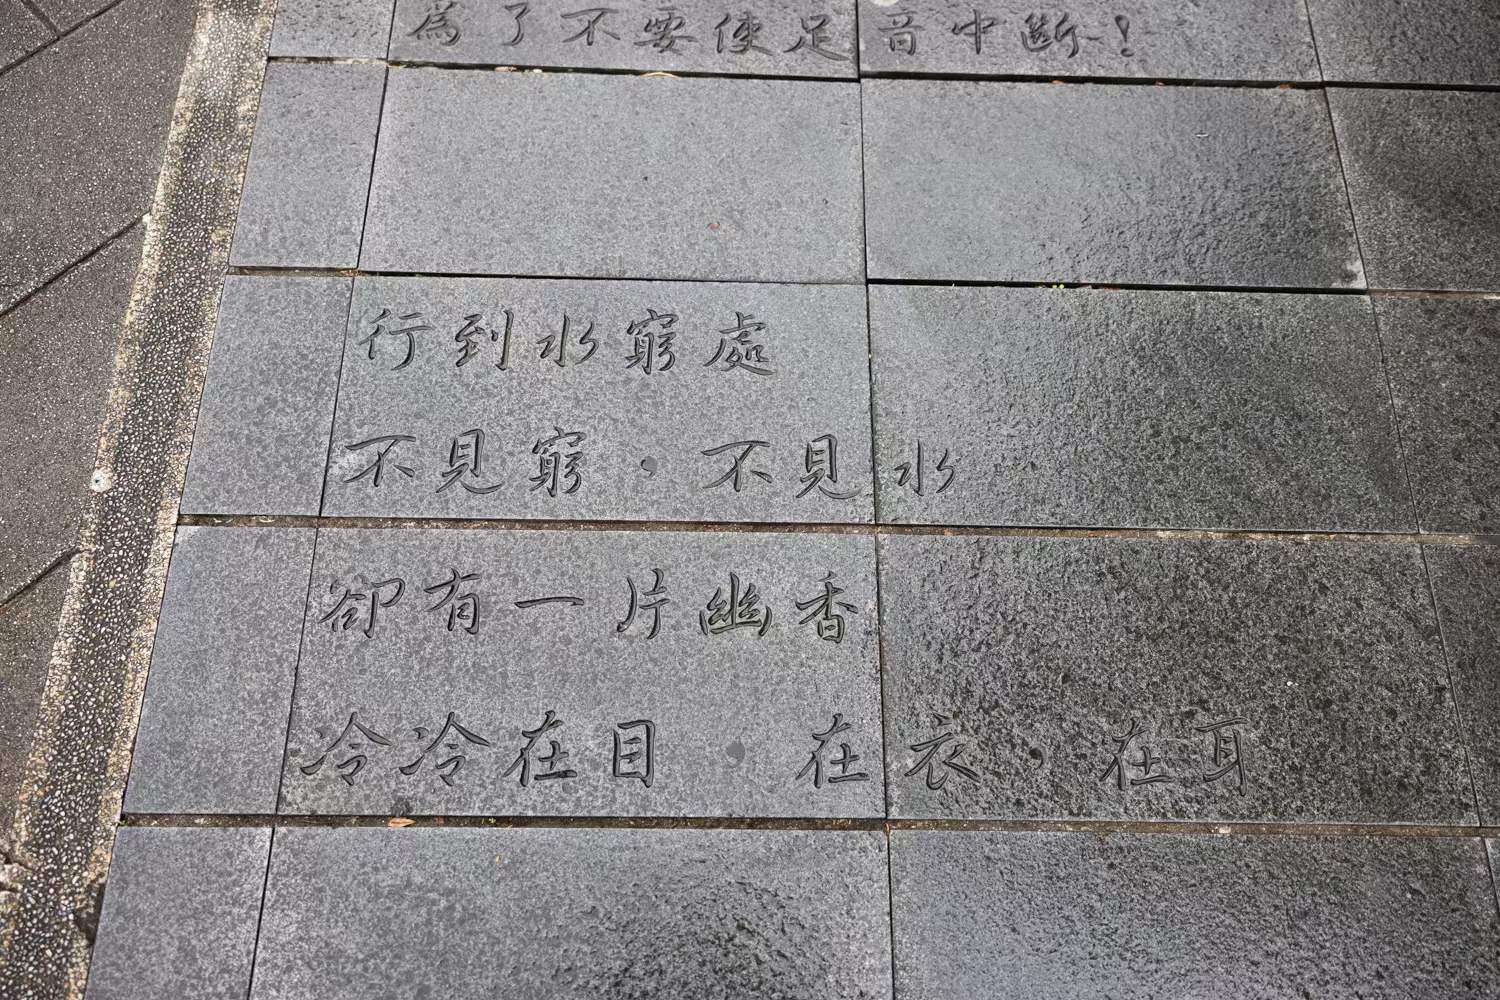 為了不要使足音中斷-!
行到水窮處
不見窮，不見水
卻有一片幽香
冷冷在目，在衣，在耳